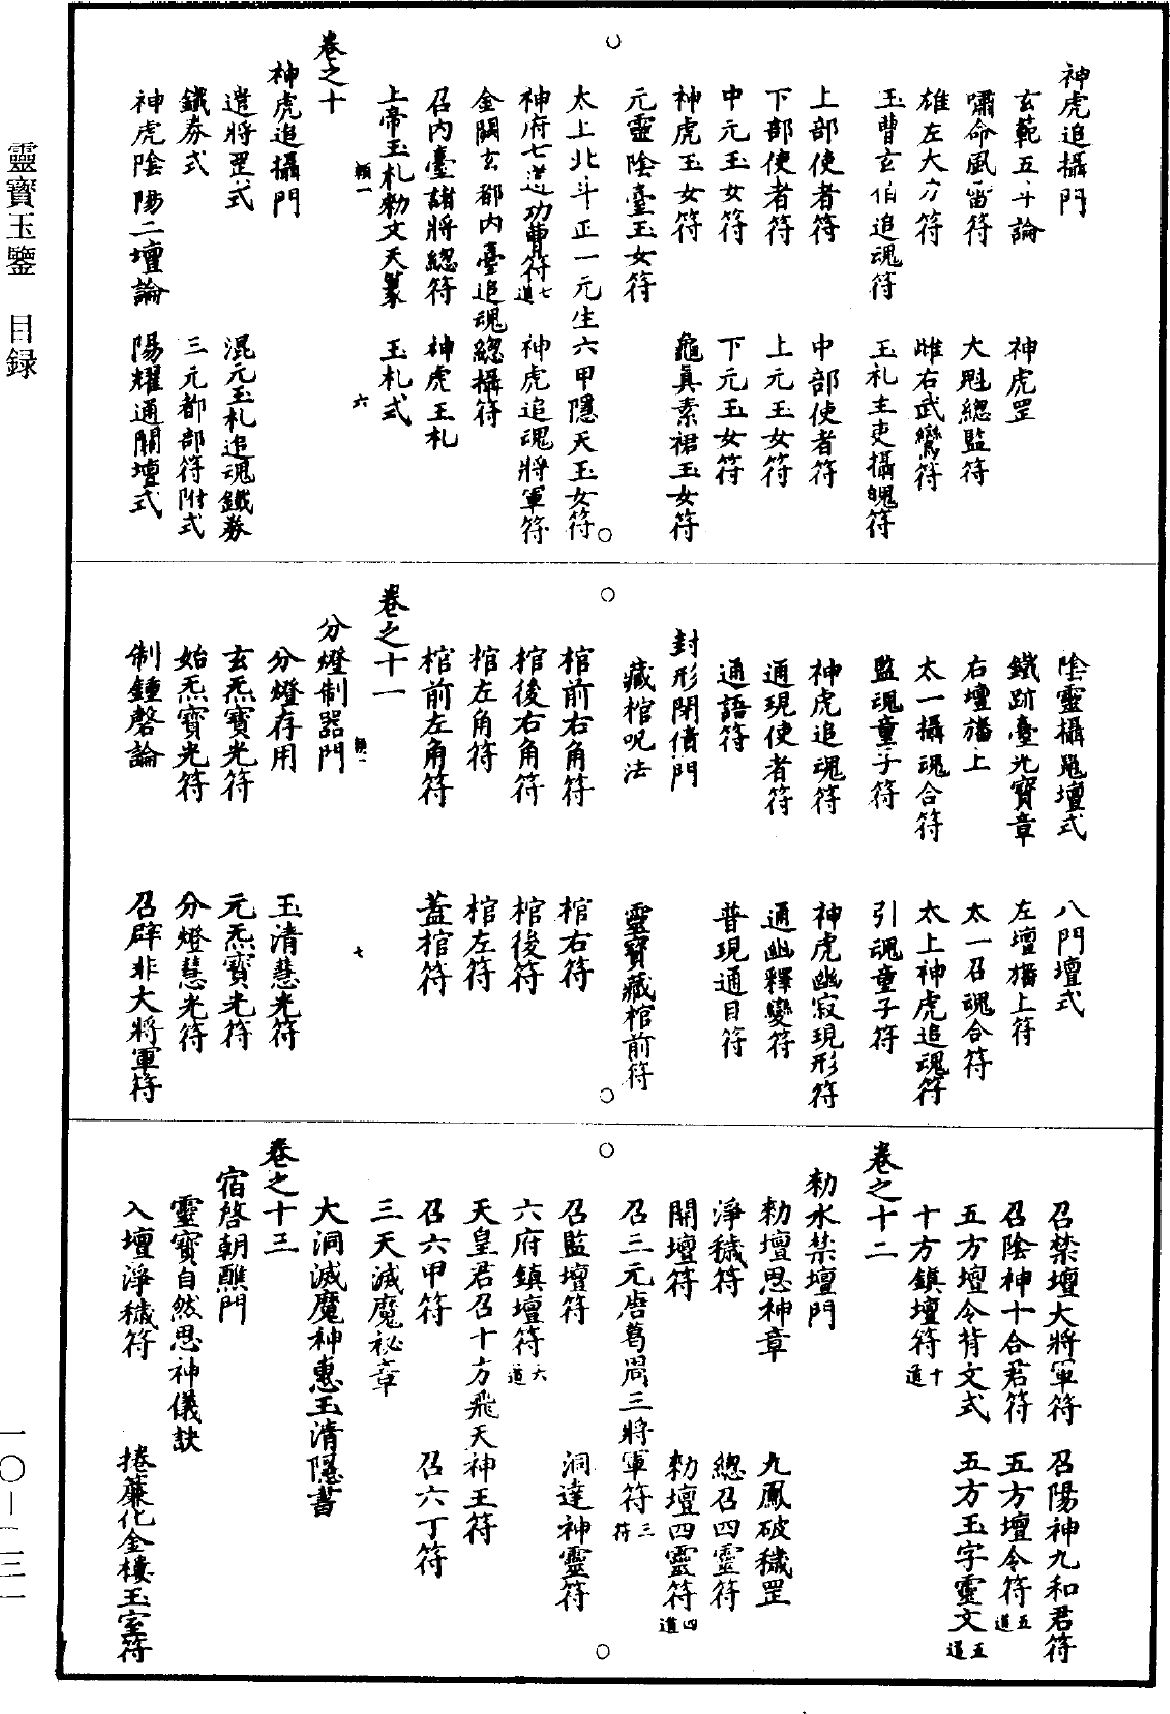 靈寶玉鑒 目録
神虎追攝門
玄範五斗論 神虎罡
嘯命風雷符 大魁總監符
雄左大力符 雌右武鸞符
玉曹玄伯追魂符 玉札主吏攝魄符
上部使者符 中部使者符
下部使者符 上元玉女符
中元玉女符 下元玉女符
神虎玉女符 龜真素裙玉女符
元靈陰臺玉女符
太上北斗正一元生六甲隱天玉女符
神府七道功曹符七道 神虎追魂將軍符
金闕玄都内臺追魂總攝符
召内臺諸將總符 神虎玉札
上帝玉札勑文天篆 玉札式
頼一 六
卷之十
神虎追攝門
遣將罡式 混元玉札追魂鐵券
鐵券式 三元都部符附式
神虎陰陽二壇論 陽耀通關壇式
陰靈攝鬼壇式 八門壇式
鐵跡臺光寶章 左壇旛上符
右壇旛上 太一召魂合符
太一攝魂合符 太上神虎追魂符
監魂童子符 引魂童子符
神虎追魂符 神虎幽寂現形符
通現使者符 通幽釋變符
通語符 普現通目符
封形閉債門
藏棺呪法 靈寶藏棺前符
棺前右角符 棺右符
棺後右角符 棺後符
棺左角符 棺左符
棺前左角符 蓋棺符
卷之十一
頼一 七
分燈制器門
分燈存用 玉清慧光符
玄炁寶光符 元炁寶光符
始炁寶光符 分燈慧光符
制鍾磬論 召辟非大將軍符
召禁壇大將軍符 召陽神九和君符
召陰神十合君符 五方壇令符五道
五方壇令背文式 五方玉字靈文五道
十方鎮壇符十道
卷之十二
勑水禁壇門
勑壇思神章 九鳳破穢罡
淨穢符 總召四靈符
開壇符 勑壇四靈符四道
召三元唐葛周三將軍符三符
召監壇符 洞達神靈符
六府鎮壇符六道
天皇君召十方飛天神王符
召六甲符 召六丁符
三天滅魔祕章
大洞滅魔神惠玉清隱書
卷之十三
宿啓朝醮門
靈寶自然思神儀訣
入壇淨穢符 捲簾化金樓玉室符
一〇—二三一